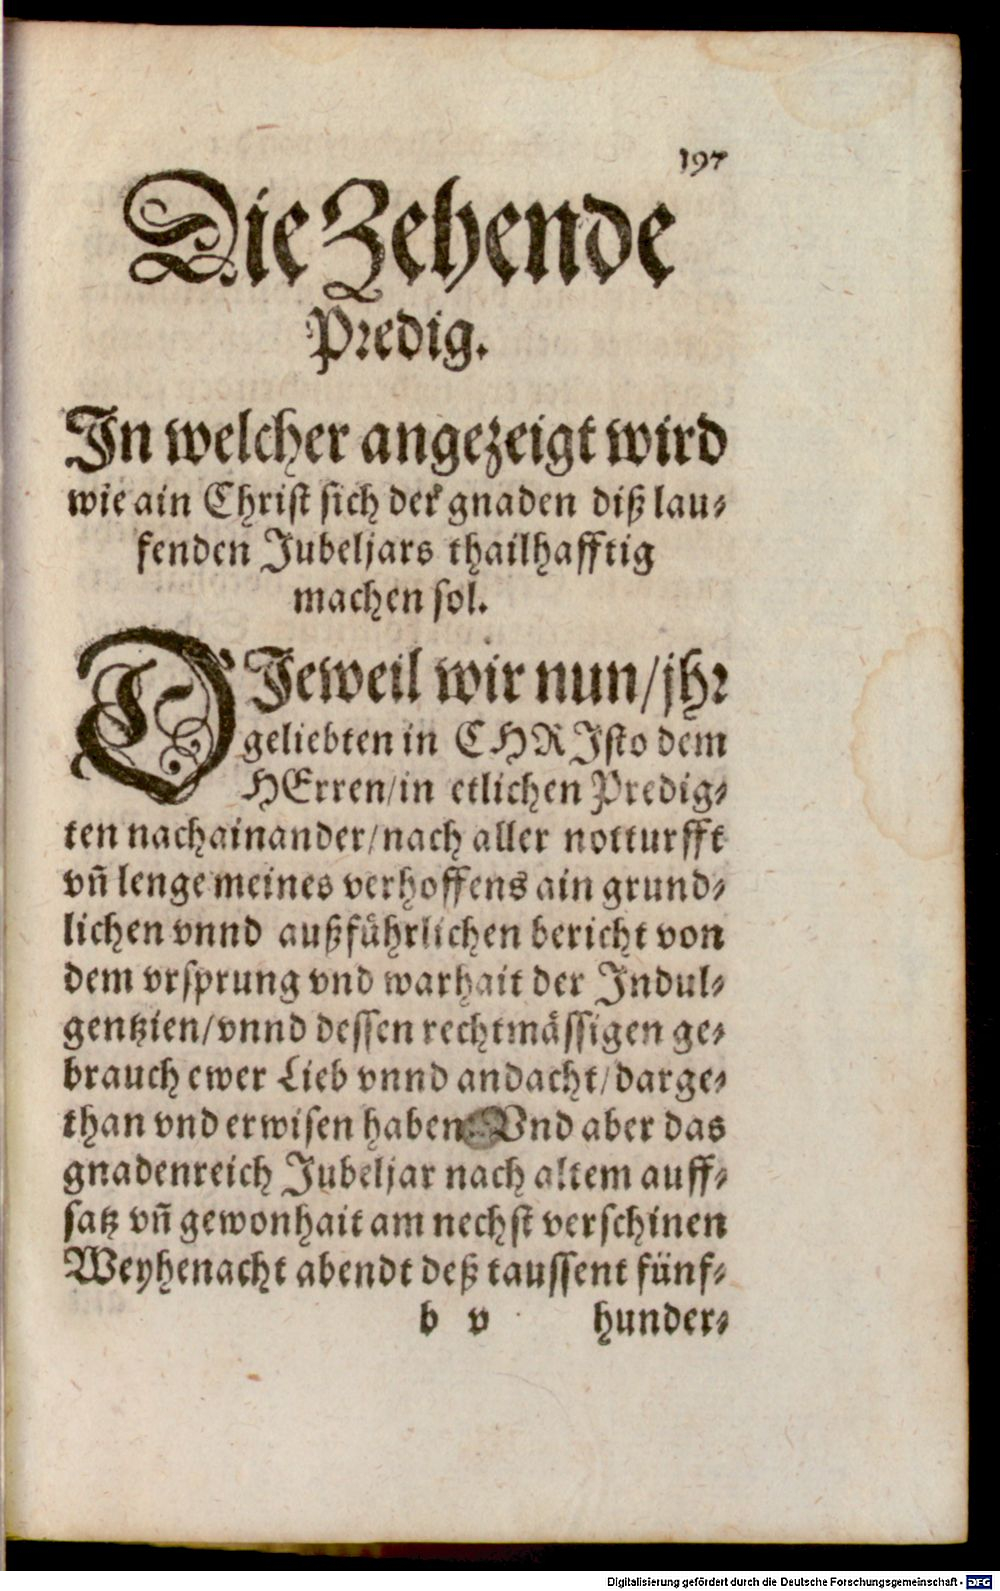 197
Die Zehende
Predig.
In welcher angezeigt wird
wie ain Christ sich der gnaden diß lau⸗
fenden Jubeljars thailhafftig
machen sol.
DJeweil wir nun/ jhr
geliebten in CHRJsto dem
HErren/ in etlichen Predig⸗
ten nachainander/ nach aller notturfft
vñ lenge meines verhoffens ain grund⸗
lichen vnnd außführlichen bericht von
dem vrsprung vnd warhait der Indul⸗
gentzien/ vnnd dessen rechtmässigen ge⸗
brauch ewer Lieb vnnd andacht/ darge⸗
than vnd erwisen haben. Vnd aber das
gnadenreich Jubeljar nach altem auff⸗
satz vñ gewonhait am nechst verschinen
Weyhenacht abendt deß taussent fünf⸗
b v hunder⸗
Digitalisierung gefördert durch die Deutsche Forschungsgemeinschaft - DFG